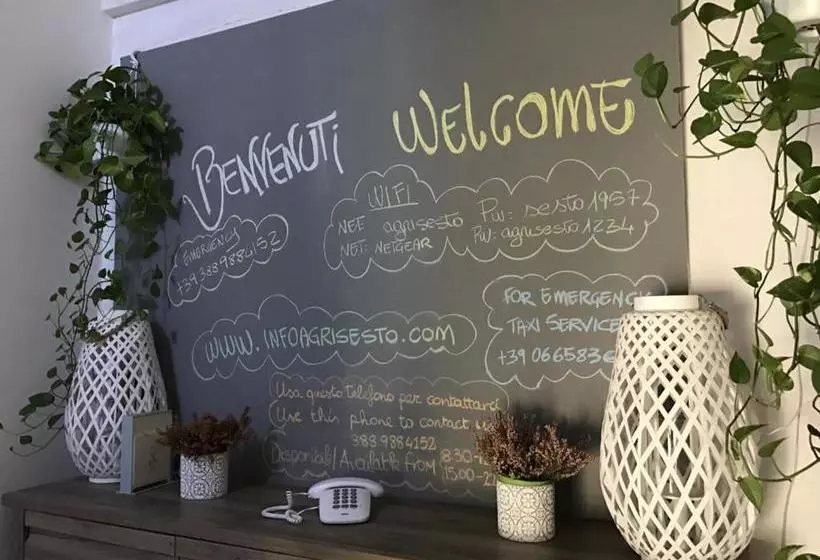 BENVENUTI
WELCOME
WIFI
NET: agrisesto Pw: sesto1957
NET: NETGEAR Pw: agrisesto1234
EMERGENCY
+393889884152
WWW.INFOAGRISESTO.COM
FOR EMERGENCY
TAXI SERVICE
+39 066583
Usa questo telefono per contattarci
Use this phone to contact
388 9884152
Disponibili/Available from 8:30-
15:00-2